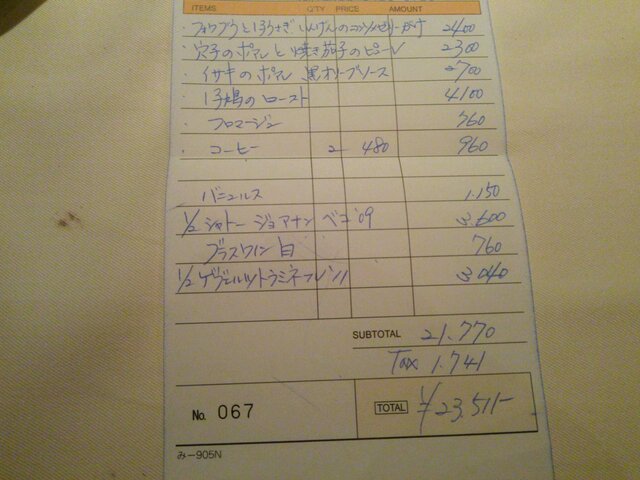 ITEMS Q'TY PRICE AMOUNT
・フォワグラと仔うさぎ いんげんのコンソメゼリーがけ 2400
・穴子のポワレと焼き茄子のピーレ 2300
・イサキのポワレ 黒オリーブソース 2700
・仔鳩のロースト 4100
・フロマージュ 760
・コーヒー 2 480 960
バニュルス 1.150
1/2 シャトー ジョアナン ベコ '09 3.600
グラスワイン 白 760
1/2 ゲヴェルツトラミネール '11 3.040
SUBTOTAL 21.770
Tax 1.741
No. 067 TOTAL ¥23,511-
み－905N